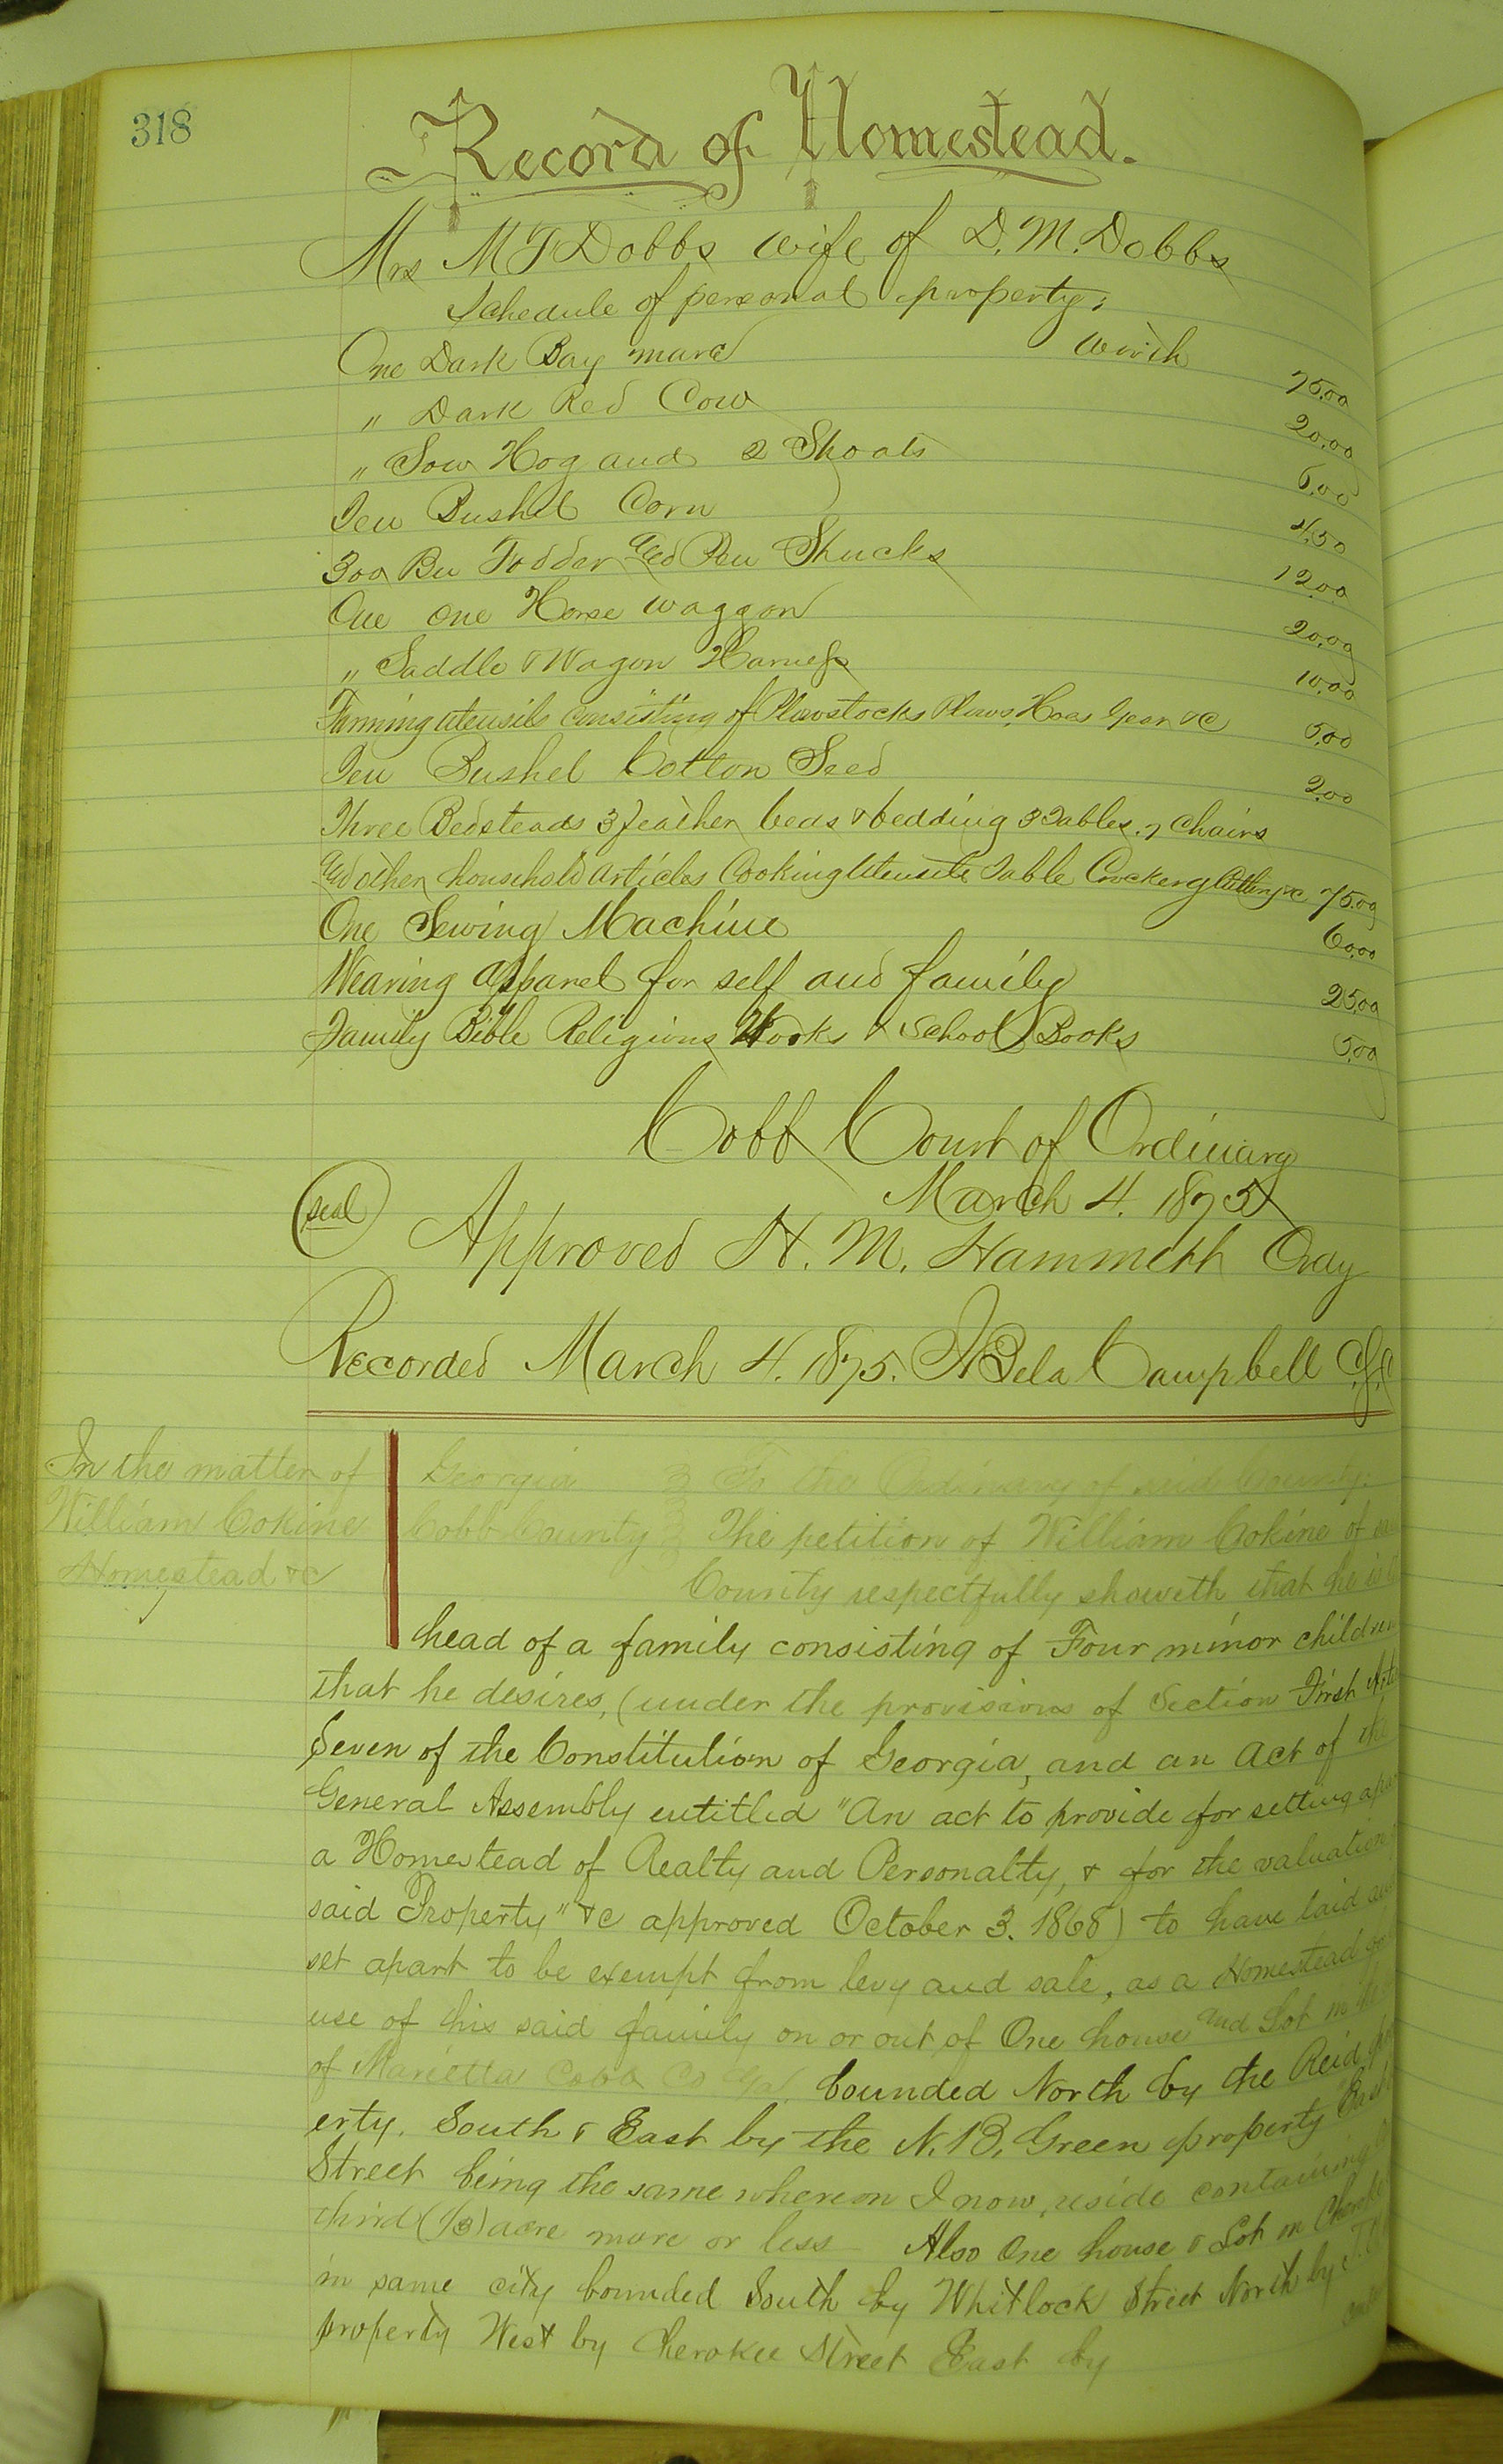 318
Record of Homestead.
Mrs M J Dobbs wife of D. M. Dobbs
Schedule of personal property;
One Dark Bay mare worth 75.00
" Dark Red Cow 20.00
" Sow Hog and 2 Shoats 6.00
Ten Bushel Corn 4.50
300 Bu Fodder and Pen Shucks 12.00
One one Horse waggon 20.00
" Saddle & Wagon Harness 10.00
Farming Utensils consisting of Plowstocks Plows, Hoes Gear &c 5.00
Ten Bushel Cotton Seed 2.00
Three Bedsteads 3 feather beds & bedding 3 Tables, 7 Chairs
and other household articles Cooking Utensils Table Crockery Cutlery &c 75.00
One Sewing Machine 60.00
Wearing apparel for self and family 25.00
Family Bible Religious Works & School Books 5.00
Cobb Court of Ordinary
March 4. 1875
(seal) Approved H. M. Hammett Ordy
Recorded March 4. 1875. Bela Campbell
In the matter of
William Cokine
Homestead &c
Georgia } To the Ordinary of said County:
Cobb County } The petition of William Cokine of
County respectfully showeth that he is
head of a family consisting of Four minor children
that he desires, (under the provisions of Section First
Seven of the Constitution of Georgia, and an Act of the
General Assembly entitled "An act to provide for setting
a Homestead of Realty and Personalty, & for the valuation
said Property" &c approved October 3. 1868) to have laid
set apart to be exempt from levy and sale, as a Homestead
use of his said family on or out of One house and Lot in the
of Marietta Cobb Co Ga, bounded North by the Reid
erty. South & East by the N. B. Green property
Street being the same whereon I now reside containing
third (1/3) acre more or less Also One house & Lot on
in same city bounded South by Whitlock Street North by
property West by Cherokee Street East by